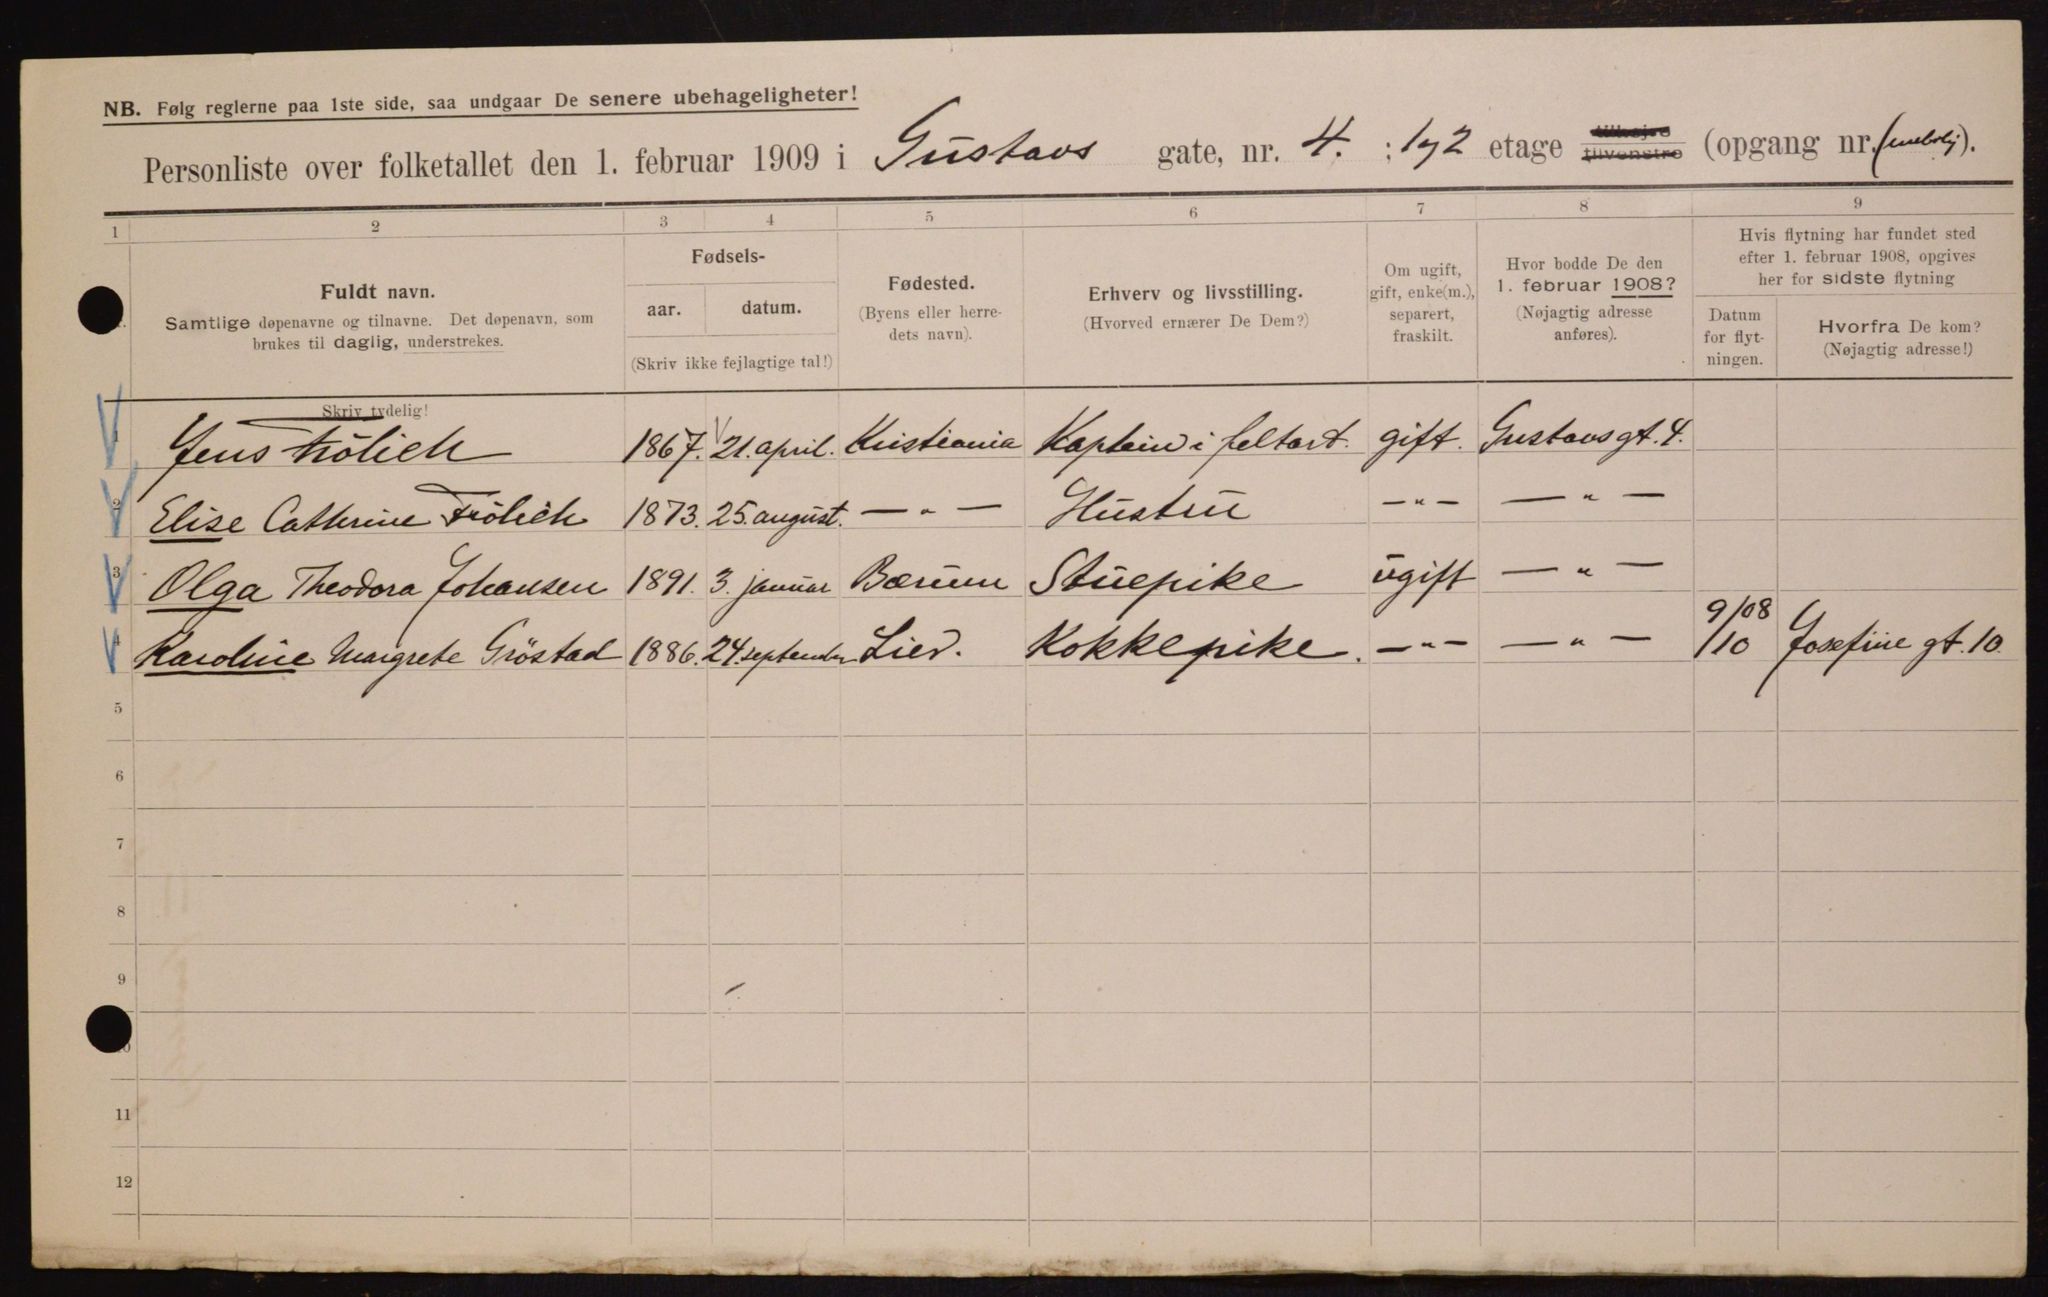 NB. Følg reglerne paa 1ste side, saa undgaar De senere ubehageligheter!
Personliste over folketallet den 1. februar 1909 i Gustavs gate, nr. 4. ; 1 og 2 etage tilhøjre tilvenstre (opgang nr. ).
1 2 3 4 5 6 7 8 9
Fuldt navn.
Samtlige døpenavne og tilnavne. Det døpenavn, som
brukes til daglig, understrekes.
Skriv tydelig!
Fødsels-
aar. datum.
(Skriv ikke fejlagtige tal!)
Fødested.
(Byens eller herre-
dets navn).
Erhverv og livsstilling.
(Hvorved ernærer De Dem?)
Om ugift,
gift, enke(m.),
separert,
fraskilt.
Hvor bodde De den
1. februar 1908?
(Nøjagtig adresse
anføres).
Hvis flytning har fundet sted
efter 1. februar 1908, opgives
her for sidste flytning
Datum
for flyt-
ningen.
Hvorfra De kom?
(Nøjagtig adresse!)
1 Jens Frölich 1867. 21. april. Kristiania Kaptein i feltart. gift. Gustavsgt. 4.
2 Elise Cathrine Frölich 1873. 25. august. — „ — Hustru — „ — — „ —
3 Olga Theodora Johansen 1891. 3. januar Bærum Stuepike ugift — „ —
4 Karoline Margrete Gröstad 1886. 24. september Lier. Kokkepike. — „ — — „ — 9/10 08 Josefine gt. 10.
5
6
7
8
9
10
11
12